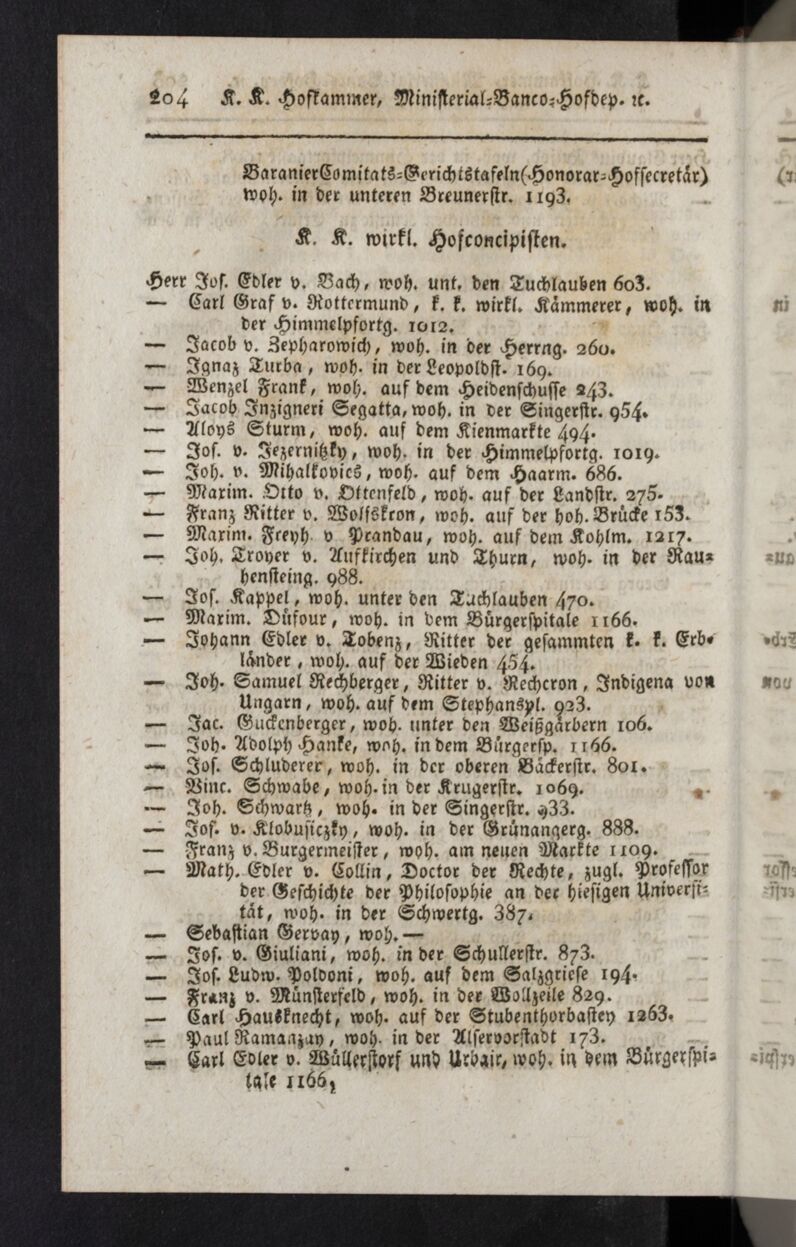 204 K. K. Hofkammer, Ministerial-Banco-Hofdep. ꝛc.
Baranier Comitats-Gerichtstafeln (Honorar-Hofsecretär)
woh. in der unteren Breunerstr. 1193.
K. K. wirkl. Hofconcipisten.
Herr Jos. Edler v. Bach, woh. unt. den Tuchlauben 603.
— Carl Graf v. Rottermund, k. k. wirkl. Kämmerer, woh. in
der Himmelpfortg. 1012.
— Jacob v. Zepharowich, woh. in der Herrng. 260.
— Ignaz Turba, woh. in der Leopoldst. 169.
— Wenzel Frank, woh. auf dem Heidenschusse 243.
— Jacob Inzigneri Segatta, woh. in der Singerstr. 954.
— Aloys Sturm, woh. auf dem Kienmarkte 494.
— Jos. v. Jezernitzky, woh. in der Himmelpfortg. 1019.
— Joh. v. Mihalkovics, woh. auf dem Haarm. 686.
— Maxim. Otto v. Ottenfeld, woh. auf der Landstr. 275.
— Franz Ritter v. Wolfskron, woh. auf der hoh. Brücke 153.
— Maxim. Freyh. v Prandau, woh. auf dem Kohlm. 1217.
— Joh. Troyer v. Aufkirchen und Thurn, woh. in der Rau-
hensteing. 988.
— Jos. Kappel, woh. unter den Tuchlauben 470.
— Maxim. Düfour, woh. in dem Bürgerspitale 1166.
— Johann Edler v. Tobenz, Ritter der gesammten k. k. Erb-
länder, woh. auf der Wieden 454.
— Joh. Samuel Rechberger, Ritter v. Rechcron, Indigena von
Ungarn, woh. auf dem Stephanspl. 923.
— Jac. Guckenberger, woh. unter den Weißgärbern 106.
— Joh. Adolph Hanke, woh. in dem Bürgersp. 1166.
— Jos. Schluderer, woh. in der oberen Bäckerstr. 801.
— Vinc. Schwabe, woh. in der Krugerstr. 1069.
— Joh. Schwartz, woh. in der Singerstr. 933.
— Jos. v. Klobusiczky, woh. in der Grünangerg. 888.
— Franz v. Burgermeister, woh. am neuen Markte 1109.
— Math. Edler v. Collin, Doctor der Rechte, zugl. Professor
der Geschichte der Philosophie an der hiesigen Universi-
tät, woh. in der Schwertg. 387.
— Sebastian Gervay, woh. —
— Jos. v. Giuliani, woh. in der Schullerstr. 873.
— Jos. Ludw. Poldoni, woh. auf dem Salzgriese 194.
— Franz v. Münsterfeld, woh. in der Wollzeile 829.
— Carl Hausknecht, woh. auf der Stubenthorbastey 1263.
— Paul Ramanzay, woh. in der Alservorstadt 173.
— Carl Edler v. Wüllerstorf und Urbair, woh. in dem Bürgerspi-
tale 1166,